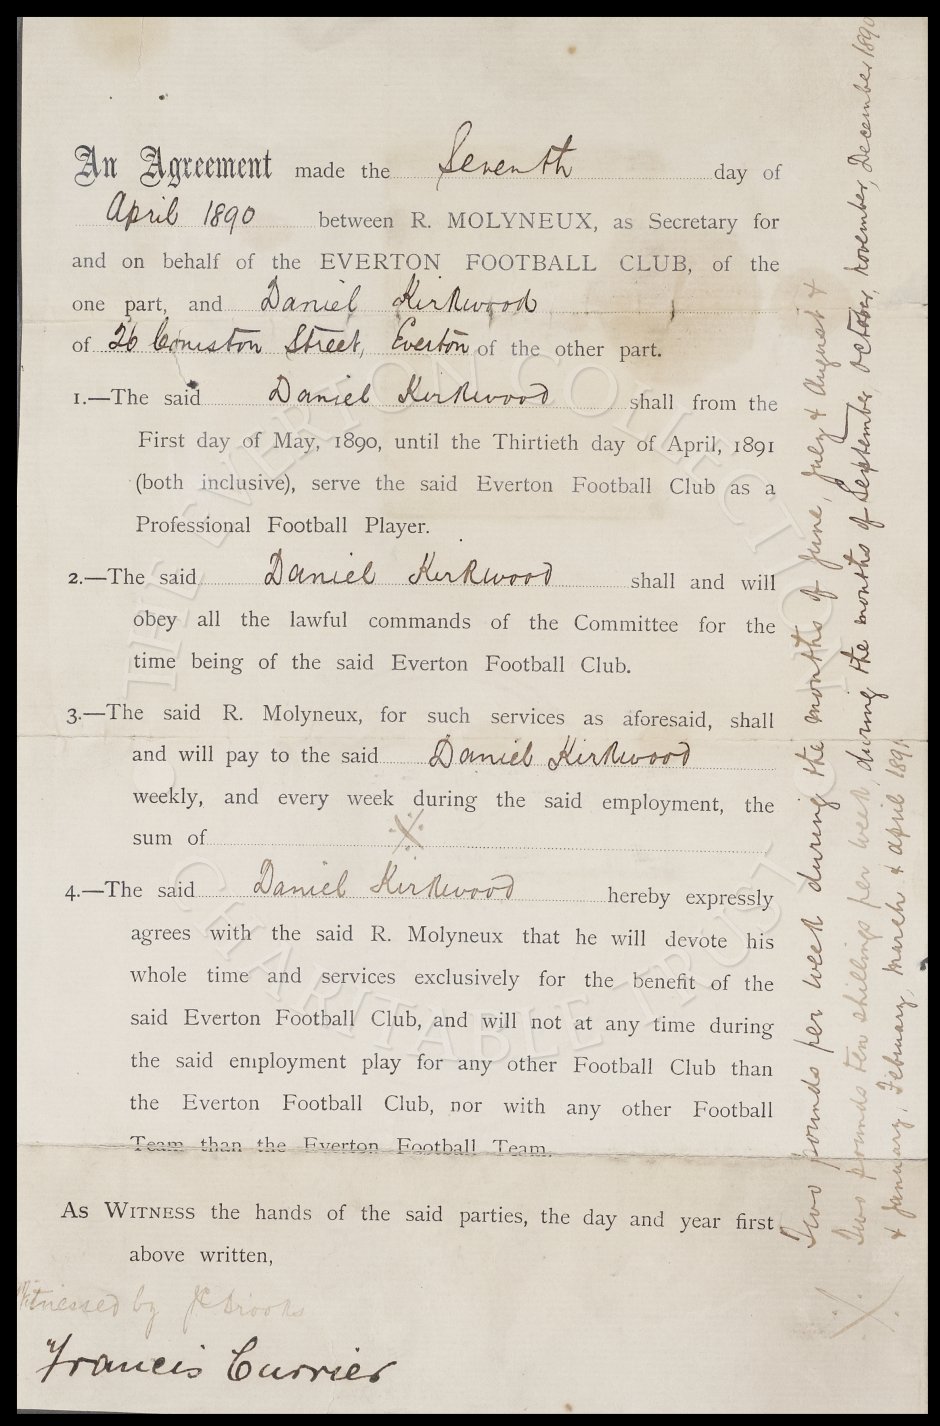 An Agreement made the Seventh day of
April 1890 between R. MOLYNEUX, as Secretary for
and on behalf of the EVERTON FOOTBALL CLUB, of the
one part, and Daniel Kirkwood
of 26 Coniston Street, Everton of the other part.
1.—The said Daniel Kirkwood shall from the
First day of May, 1890, until the Thirtieth day of April, 1891
(both inclusive), serve the said Everton Football Club as a
Professional Football Player.
2.—The said Daniel Kirkwood shall and will
obey all the lawful commands of the Committee for the
time being of the said Everton Football Club.
3.—The said R. Molyneux, for such services as aforesaid, shall
and will pay to the said Daniel Kirkwood
weekly, and every week during the said employment, the
sum of ※
4.—The said Daniel Kirkwood hereby expressly
agrees with the said R. Molyneux that he will devote his
whole time and services exclusively for the benefit of the
said Everton Football Club, and will not at any time during
the said employment play for any other Football Club than
the Everton Football Club, nor with any other Football
Team than the Everton Football Team.
As WITNESS the hands of the said parties, the day and year first
above written,
Witnessed by
Francis Currier
※ Two pounds per week during the months of June, July & August &
Two pounds ten shillings per week, during the months of September, October, November, December 1890
& January, February, March & April 1891
THE EVERTON COLLECTION
CHARITABLE TRUST